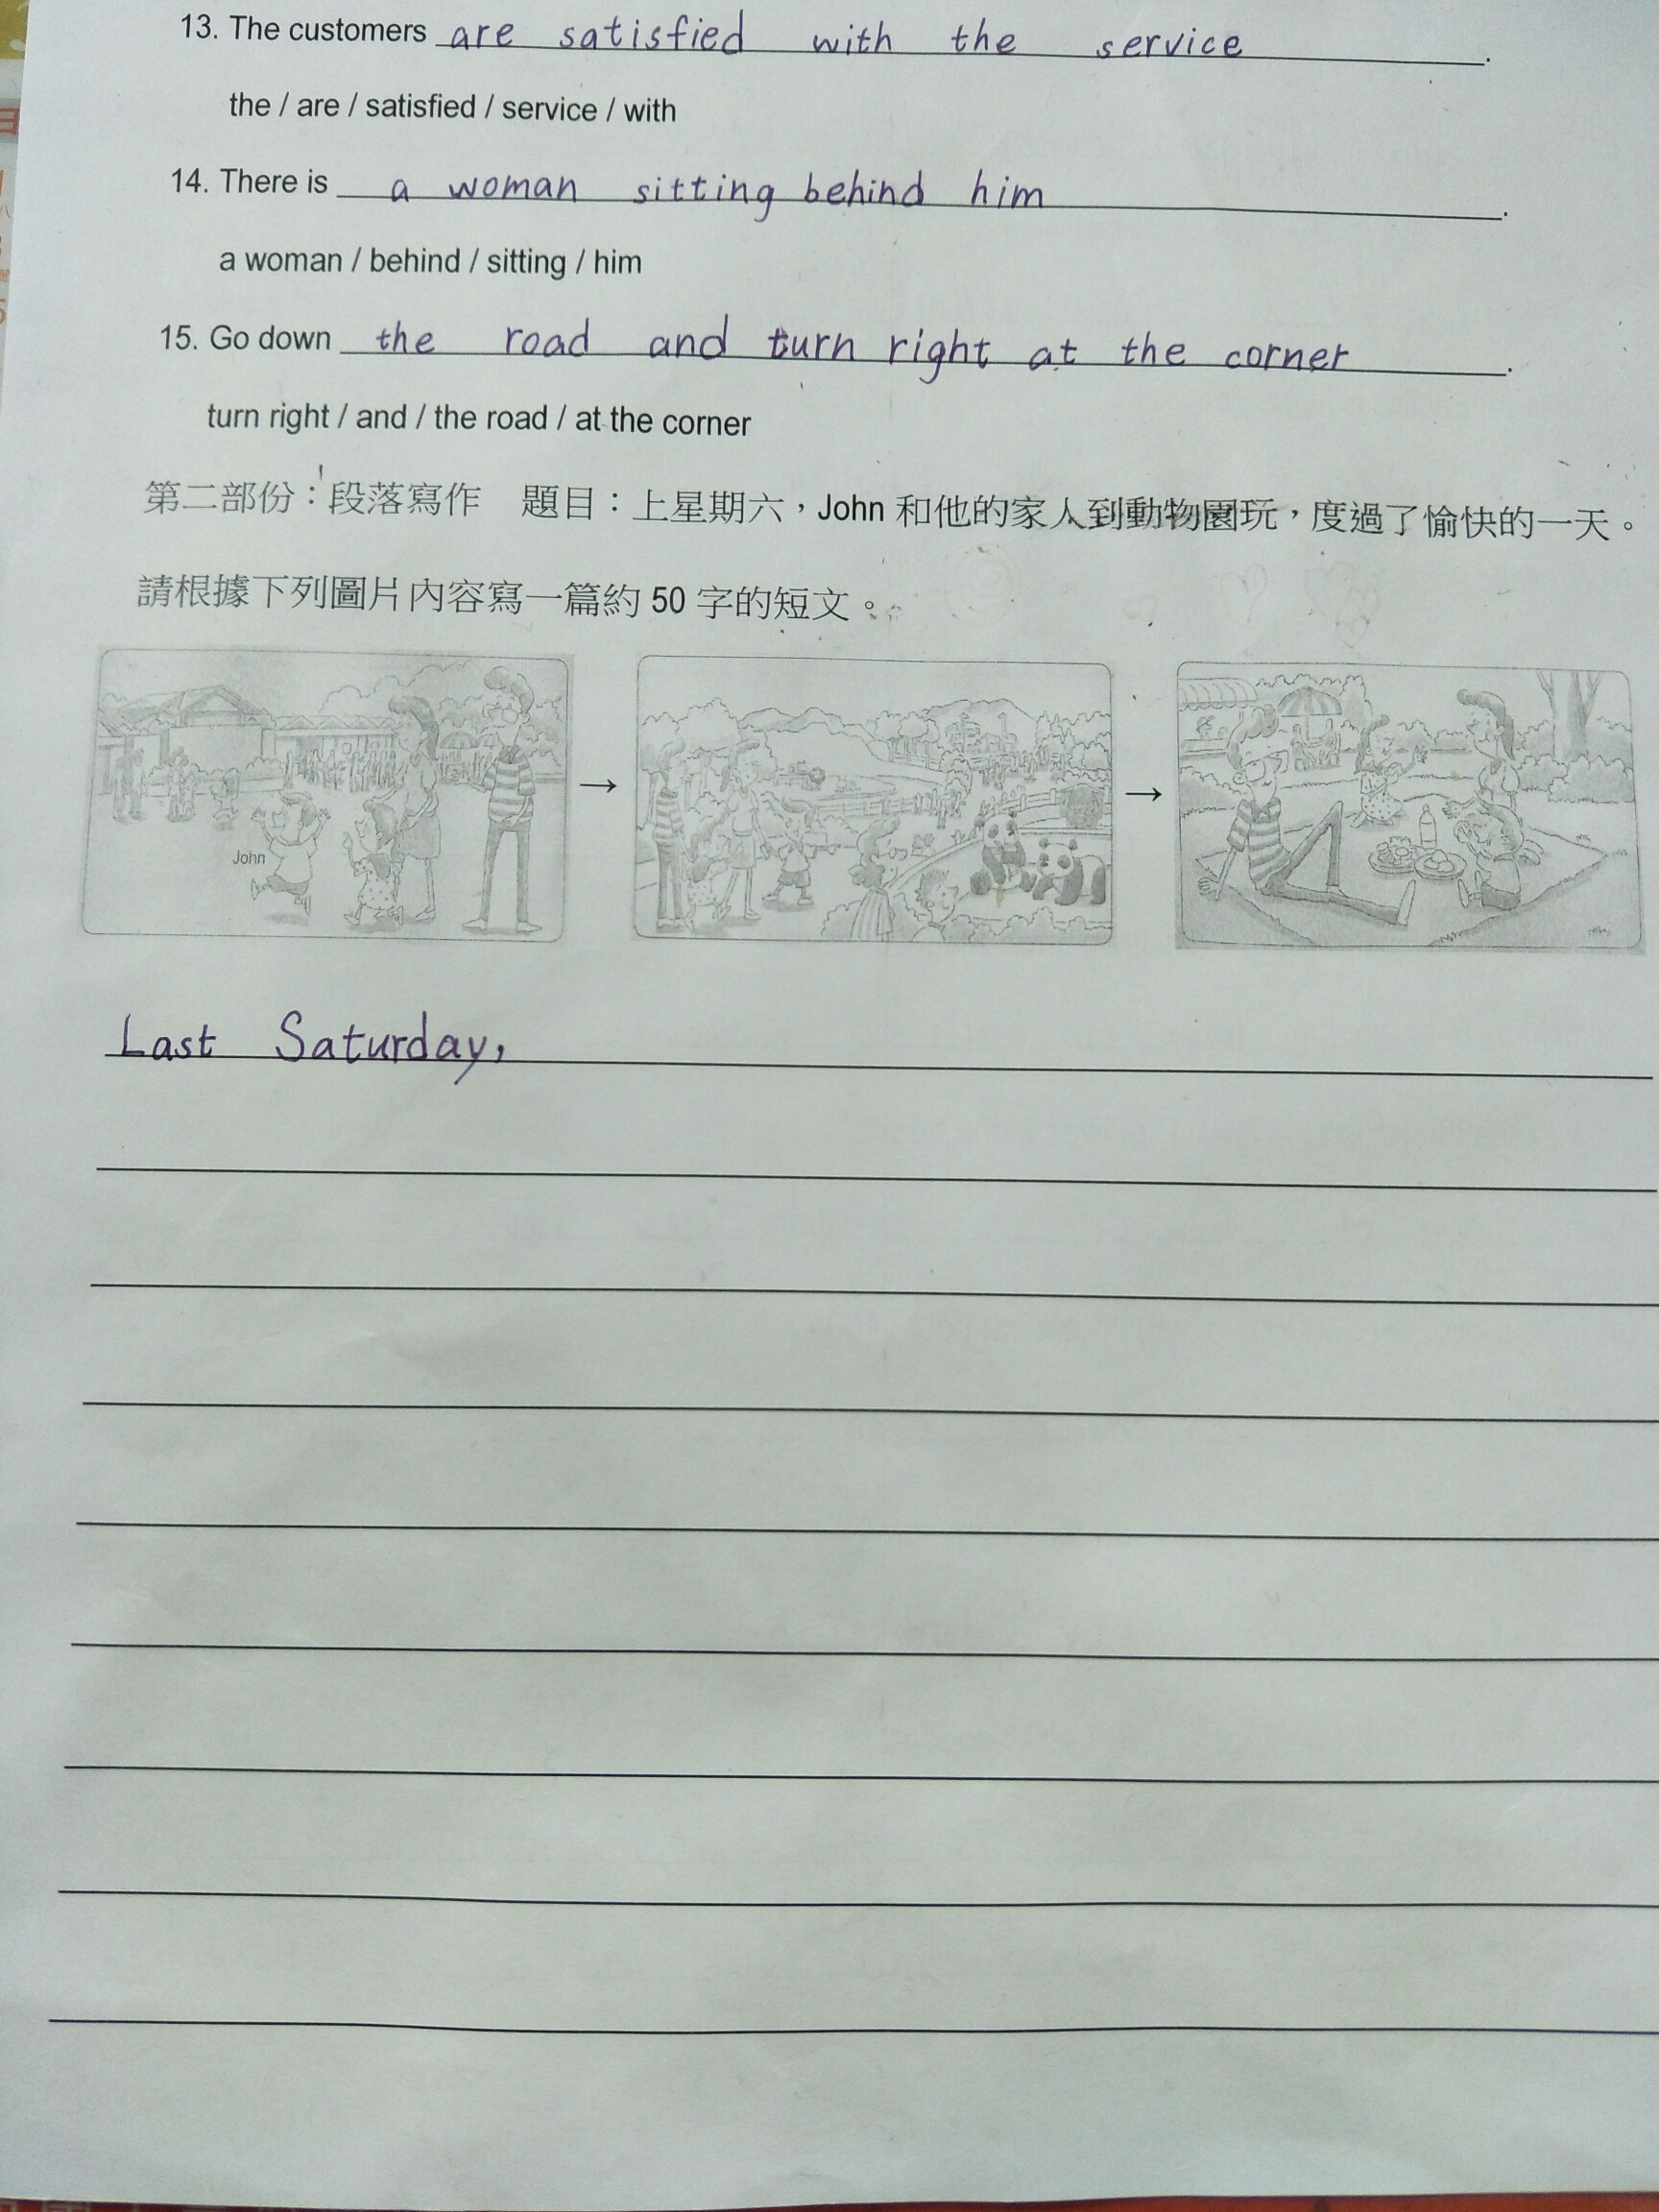 13. The customers are satisfied with the service.
the / are / satisfied / service / with
14. There is a woman sitting behind him.
a woman / behind / sitting / him
15. Go down the road and turn right at the corner.
turn right / and / the road / at the corner
第二部份：段落寫作 題目：上星期六，John 和他的家人到動物園玩，度過了愉快的一天。
請根據下列圖片內容寫一篇約 50 字的短文。
John
→
→
Last Saturday,